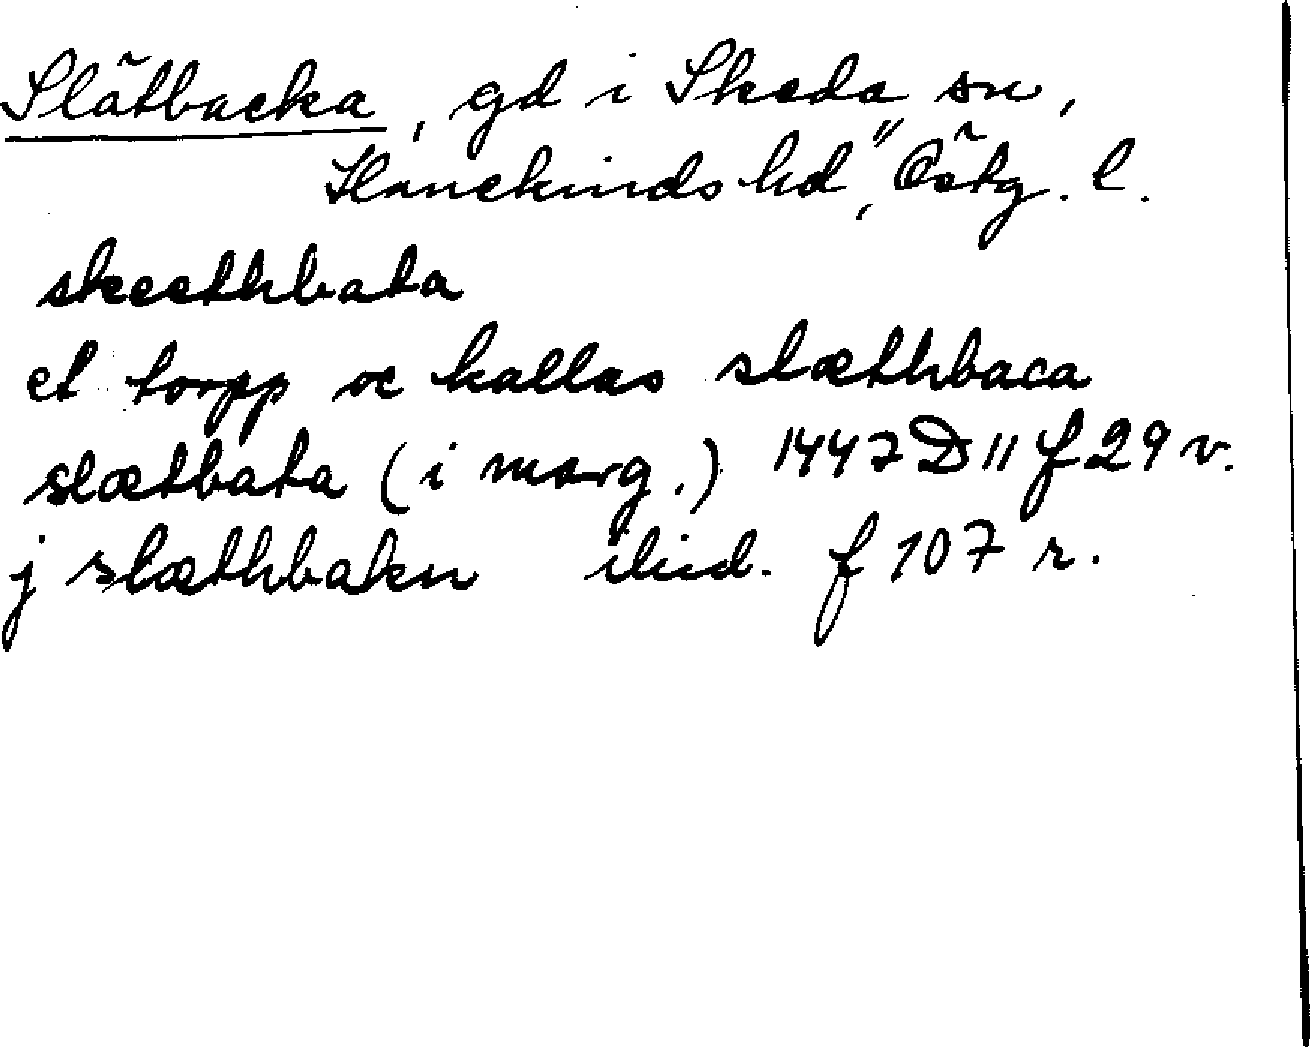 Slätbacka, gd i Skeda sn,
Hanekinds hd, Östg. l.
skeethbaka
et torpp oc kallas slæthbaca
slætbaka (i marg.) 1447 D 11 f 29 v.
j slæthbaku ibid. f 107 r.